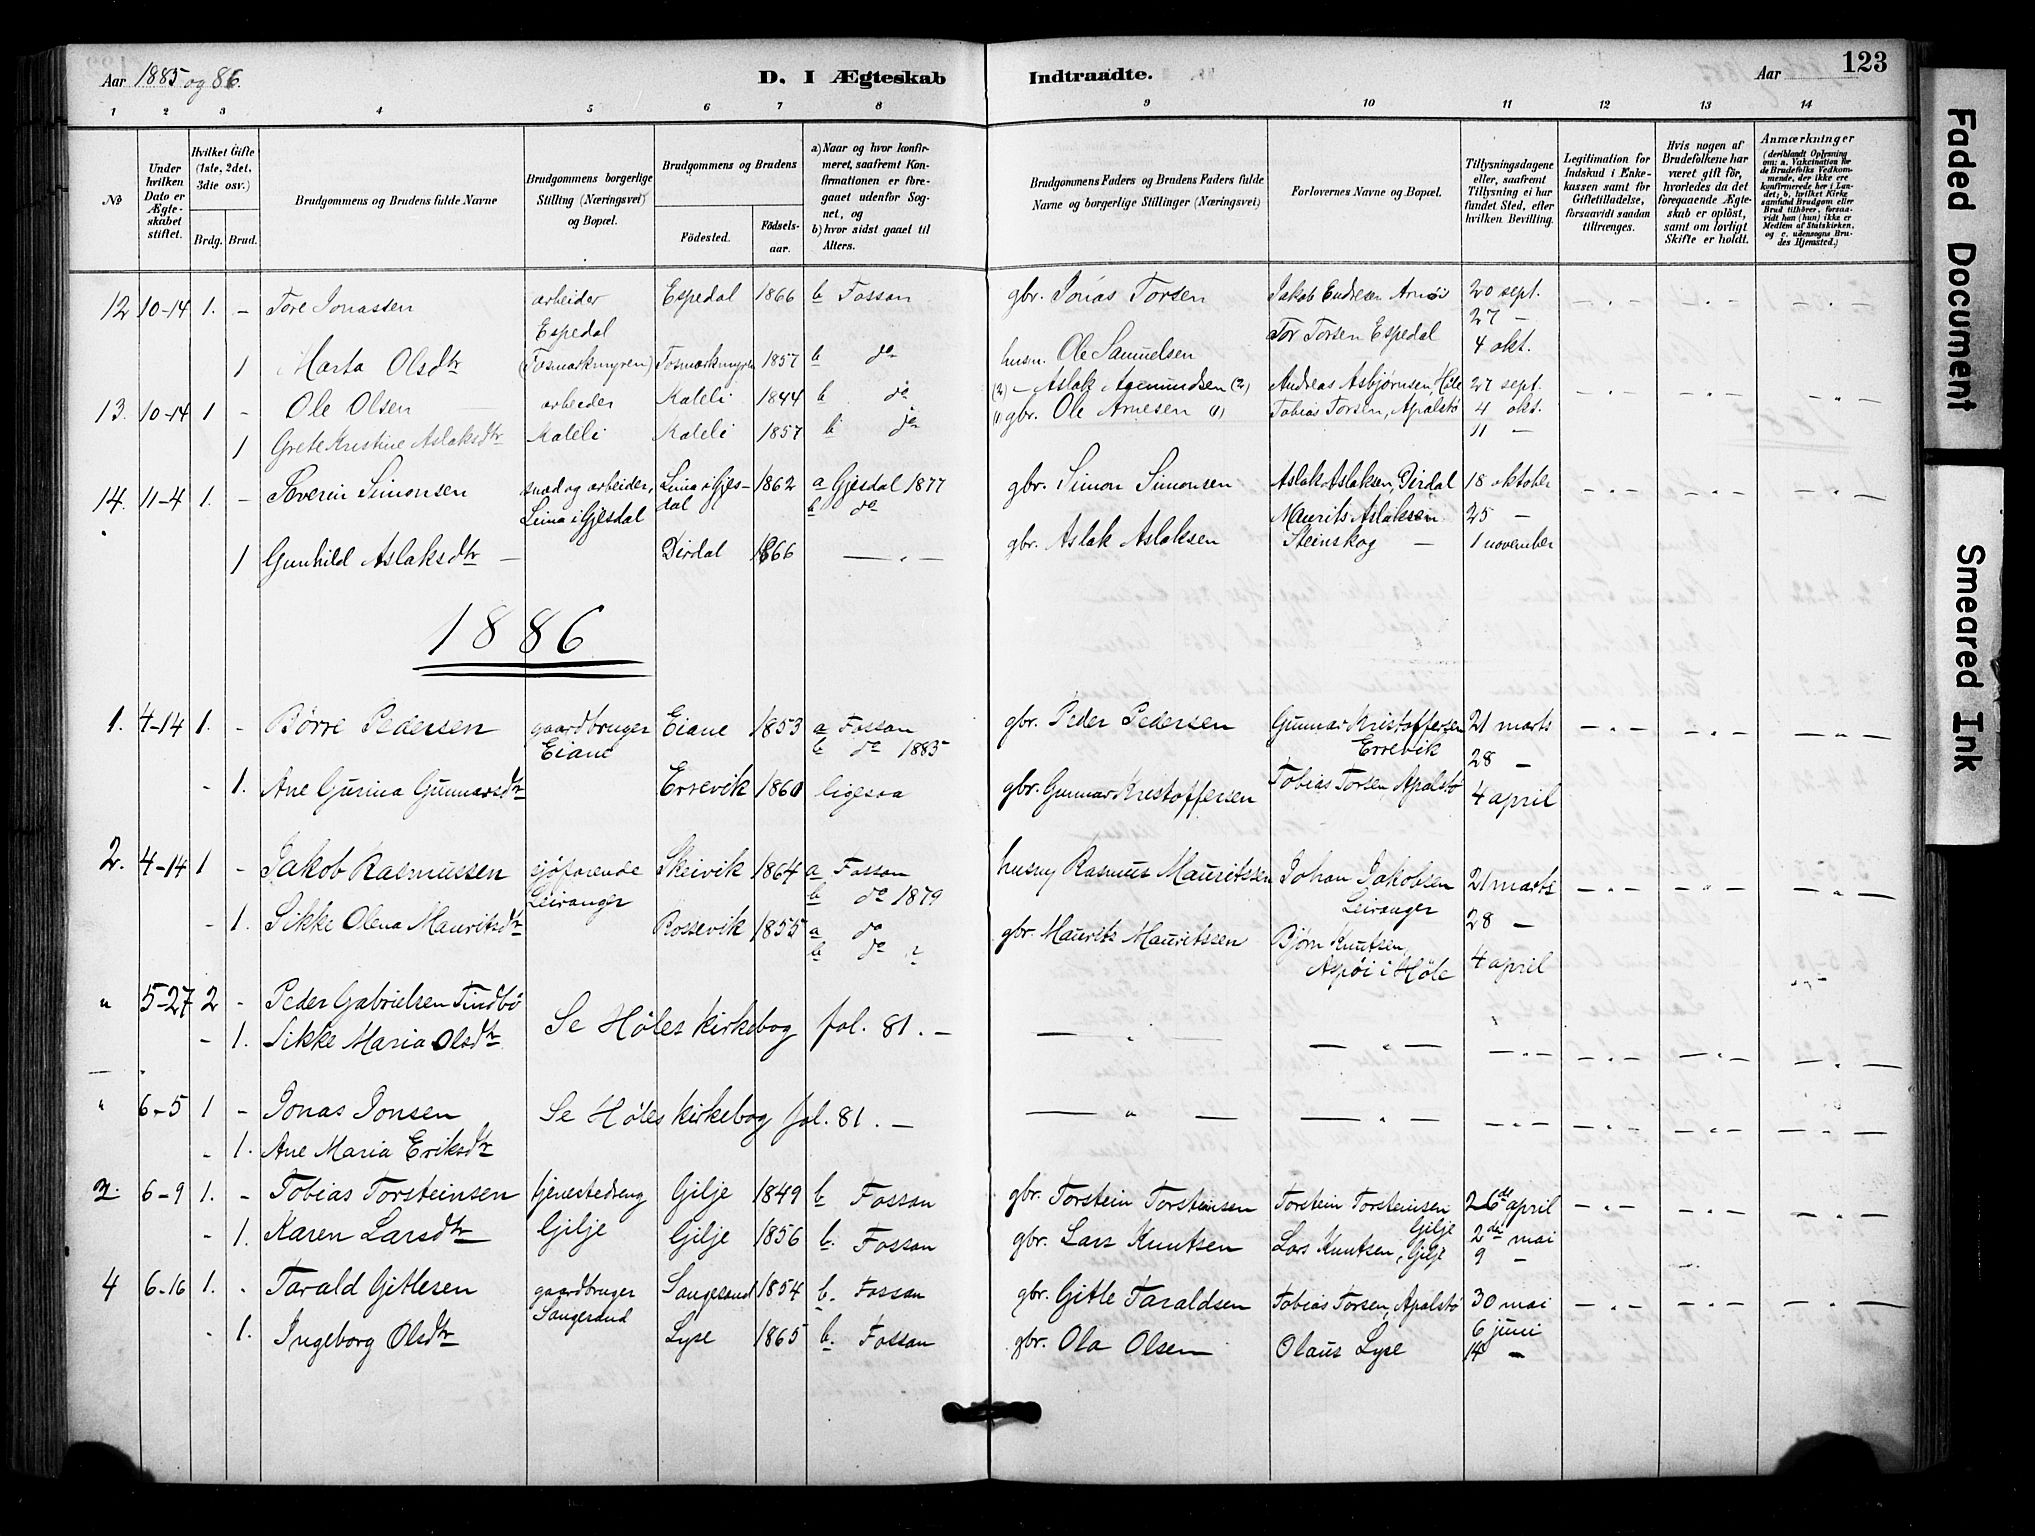 Aar 1885 og 86. D. I Ægteskab Indtraadte. Aar 123
1 2 3 4 5 6 7 8 9 10 11 12 13 14
No
Under hvilken Dato er Ægteskabet stiftet.
Hvilket Gifte (1ste, 2det, 3die osv.)
Brdg. Brud.
Brudgommens og Brudens fulde Navne
Brudgommens borgerlige Stilling (Næringsvei) og Bopæl.
Brudgommens og Brudens
Fødested. Fødselsaar.
a) Naar og hvor konfirmeret, saafremt Konfirmationen er foregaaet udenfor Sognet, og
b) hvor sidst gaaet til Alters.
Brudgommens Faders og Brudens Faders fulde Navne og borgerlige Stillinger (Næringsvei)
Forlovernes Navne og Bopæl.
Tillysningsdagene eller, saafremt Tillysning ei har fundet Sted, efter hvilken Bevilling.
Legitimation for Indskud i Enkekassen samt for Giftetilladelse, forsaavidt saadan tiltrænges.
Hvis nogen af Brudefolkene har været gift før, hvorledes da det foregaaende Ægteskab er opløst, samt om lovligt Skifte er holdt.
Anmærkninger (deriblandt Oplysning om: a. Vakcination for de Brudefolks Vedkommende, der ikke ere konfirmerede her i Landet; b. hvilket Kirkesamfund Brudgom eller Brud tilhører, forsaavidt han (hun) ikke er Medlem af Statskirken, og c. udensogns Brudes Hjemsted.)
12 10-14 1. - Tore Jonassen arbeider Espedal 1866 b Fossan gbr. Jonas Torsen Jakob Endresen Arnøi 20 sept.
Espedal Tor Torsen Espedal 27 -
1 Marta Olsdtr (Fosmarkmyren) Fosmarkmyren 1857 b do husm. Ole Samuelsen 4 okt.
13. 10-14 1 - Ole Olsen arbeider Maleli 1844 b do (2) - Aslak Aamundsen (2) Andreas Asbjørnsen Høle 27 sept.
1 Grete Kristine Aslaksdtr Maleli Maleli 1857 b do (1) gbr. Ole Arnesen (1) Tobias Torsen, Apalstø 4 okt.
11 -
14. 11-4 1. - Severin Simonsen snedog arbeider, Lima i Gjesdal 1862 a Gjesdal 1877 gbr. Simon Simonsen Aslak Aslaksen, Dirdal 18 oktober
Lima i Gjesdal b do Maurits Aslaksen 25 -
1 Gunhild Aslaksdtr - Dirdal 1866 gbr. Aslak Aslaksen Steinskog - 1 november
1886
1. 4-14 1. - Børre Pedersen gaardbruger Eiane 1853 a Fossan gbr. Peder Pedersen Gunnar Kristoffersen 21 marts
Eiane b do 1883 Errevik 28 -
- 1. Ane Gurina Gunnarsdtr Errevik 1860 ligesaa gbr. Gunnar Kristoffersen Tobias Torsen, Apalstø 4 april
2. 4-14 1 - Jakob Rasmussen sjøfarende Skeivik 1864 a Fossan husm Rasmus Mauritssen Johan Jakobsen 21 marts
Leiranger b do 1879 Leiranger 28 -
- 1. Sikke Olena Mauritsdtr Rossevik 1855 a do gbr. Maurits Mauritssen Bjørn Knutsen,
b do ? Aspøi i Høle 4 april
" 5-27 2 - Peder Gabrielsen Tindbø Se Høles kirkebog fol. 81. -
- 1. Sikke Maria Olsdtr
" 6-5 1 - Jonas Jonsen Se Høles kirkebog fol. 81. -
- 1. Ane Maria Eriksdtr
3. 6-9 1. - Tobias Torsteinsen tjenestedreng Gilje 1849 b Fossan gbr. Torstein Torsteinsen Torstein Torsteinsen 26de april
Gilje 2den mai
- 1. Karen Larsdtr Gilje Gilje 1856 b. Fossan gbr. Lars Knutsen Lars Knutsen, Gilje 9 -
4 6-16 1. - Tarald Gitlesen gaardbruger Sangesand 1854 b. Fossan gbr. Gitle Taraldsen Tobias Torsen, Apalstø 30 mai
Sangesand 6 juni
- 1. Ingeborg Olsdtr Lyse 1865 b. Fossan gbr. Ola Olsen Olaus Lyse 14 -
Faded Document
Smeared Ink